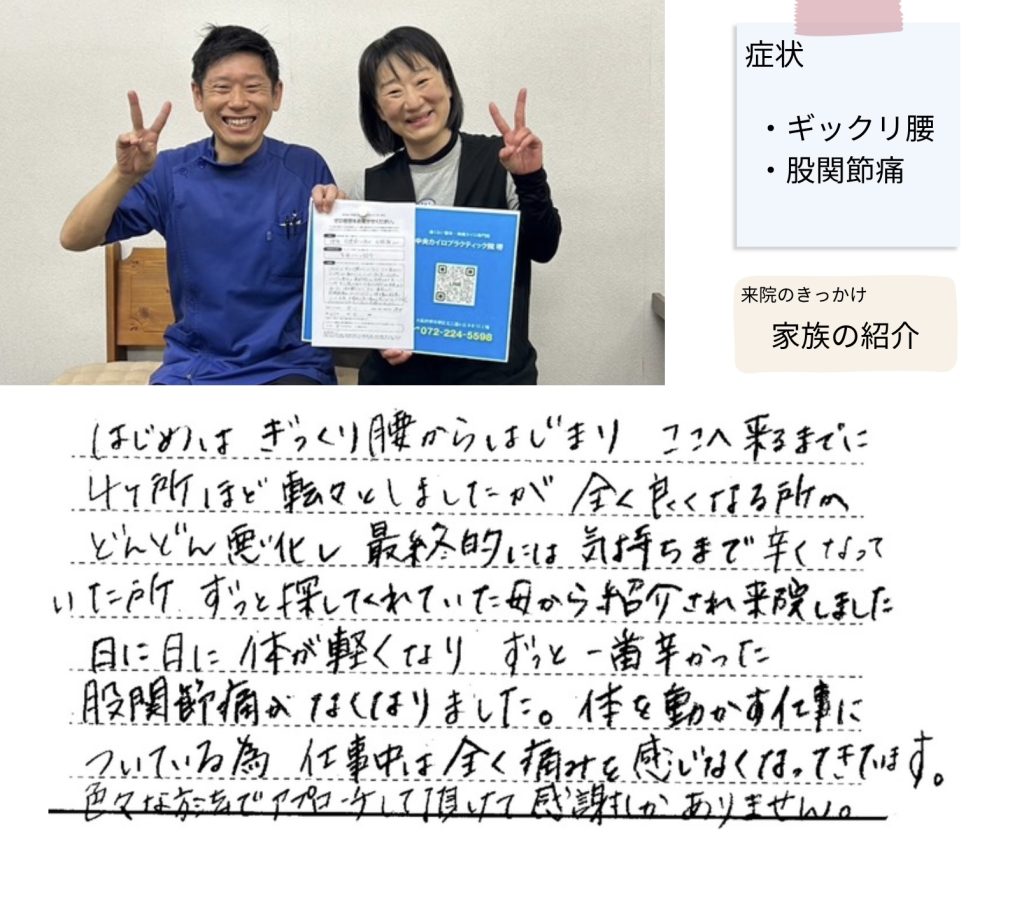 症状
・ギックリ腰
・股関節痛
来院のきっかけ
家族の紹介
中央カイロプラクティック院 堺
LINE
072-224-5598
はじめは ぎっくり腰からはじまり ここへ来るまでに
4ヶ所ほど転々としましたが 全く良くなる所か
どんどん悪化し 最終的には 気持ちまで辛くなって
いた所 ずっと探してくれていた母から紹介され来院しました
日に日に体が軽くなり ずっと一番辛かった
股関節痛がなくなりました。体を動かす仕事に
ついている為 仕事中は全く痛みを感じなくなってきています。
色々な方法でアプローチして頂けて感謝しかありません。